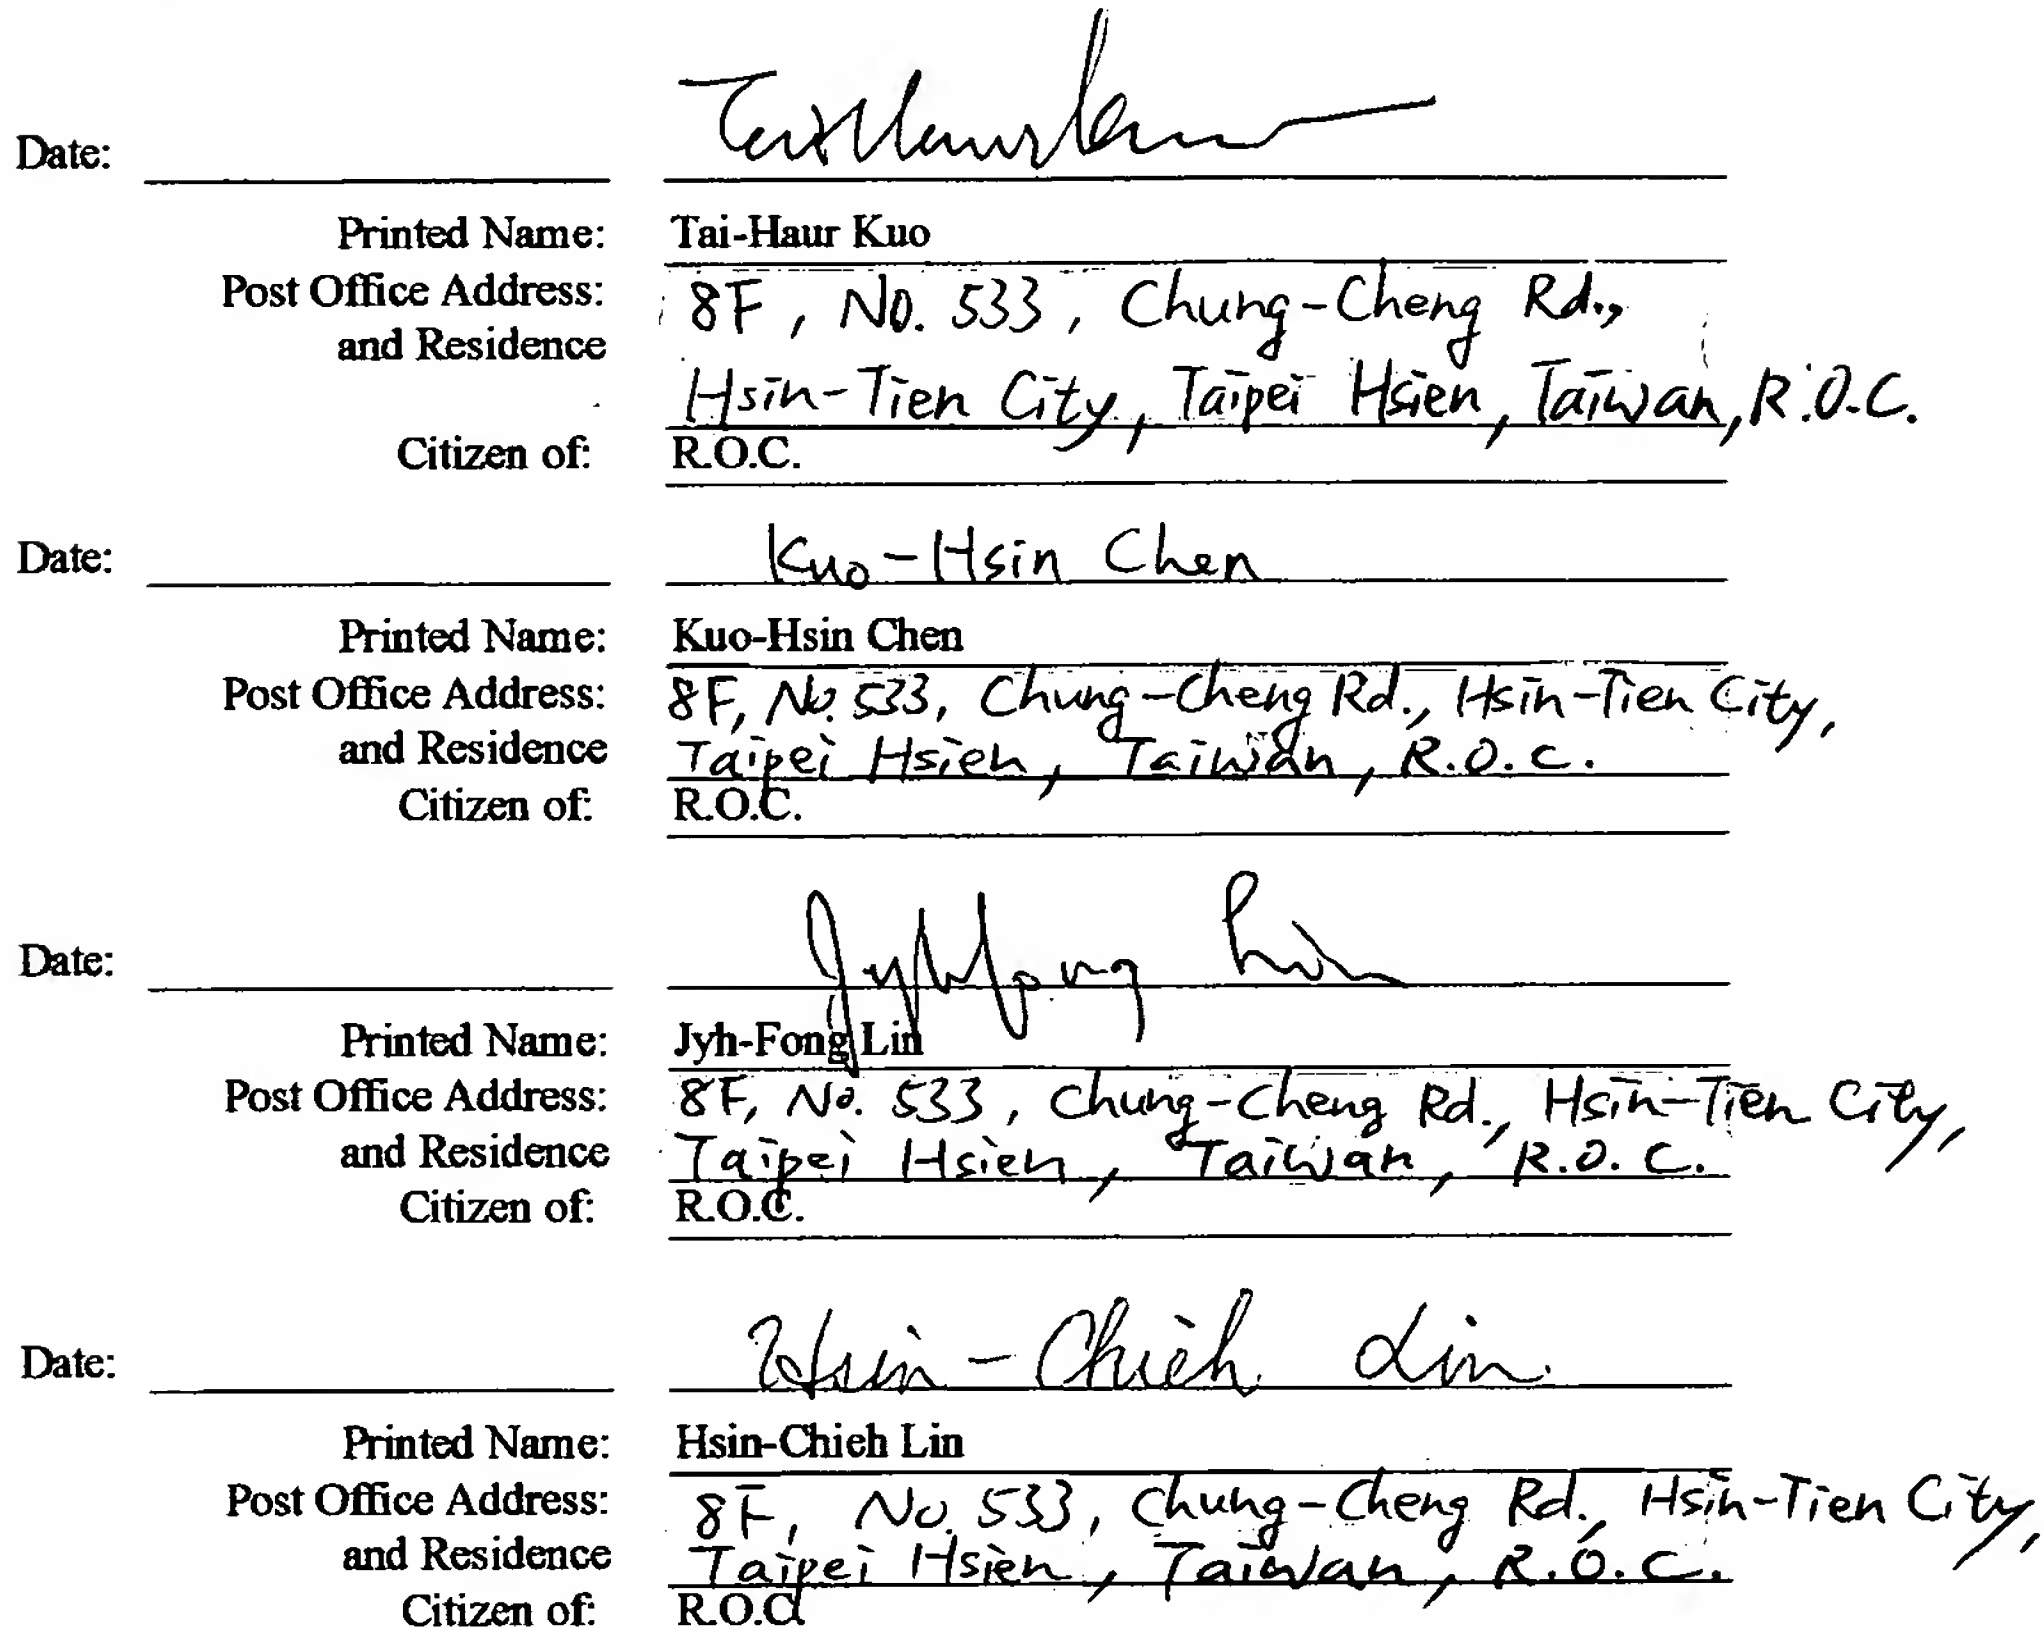 Date: Tai Haur Kuo
Printed Name: Tai-Haur Kuo
Post Office Address: 8F, No. 533, Chung-Cheng Rd.,
and Residence
Hsin-Tien City, Taipei Hsien, Taiwan, R.O.C.
Citizen of: R.O.C.
Date: Kuo-Hsin Chen
Printed Name: Kuo-Hsin Chen
Post Office Address: 8F, No. 533, Chung-Cheng Rd., Hsin-Tien City,
and Residence Taipei Hsien, Taiwan, R.O.C.
Citizen of: R.O.C.
Date: Jyh Fong Lin
Printed Name: Jyh-Fong Lin
Post Office Address: 8F, No. 533, Chung-Cheng Rd., Hsin-Tien City,
and Residence Taipei Hsien, Taiwan, R.O.C.
Citizen of: R.O.C.
Date: Hsin-Chieh Lin
Printed Name: Hsin-Chieh Lin
Post Office Address: 8F, No. 533, Chung-Cheng Rd., Hsin-Tien City,
and Residence Taipei Hsien, Taiwan, R.O.C.
Citizen of: R.O.C.